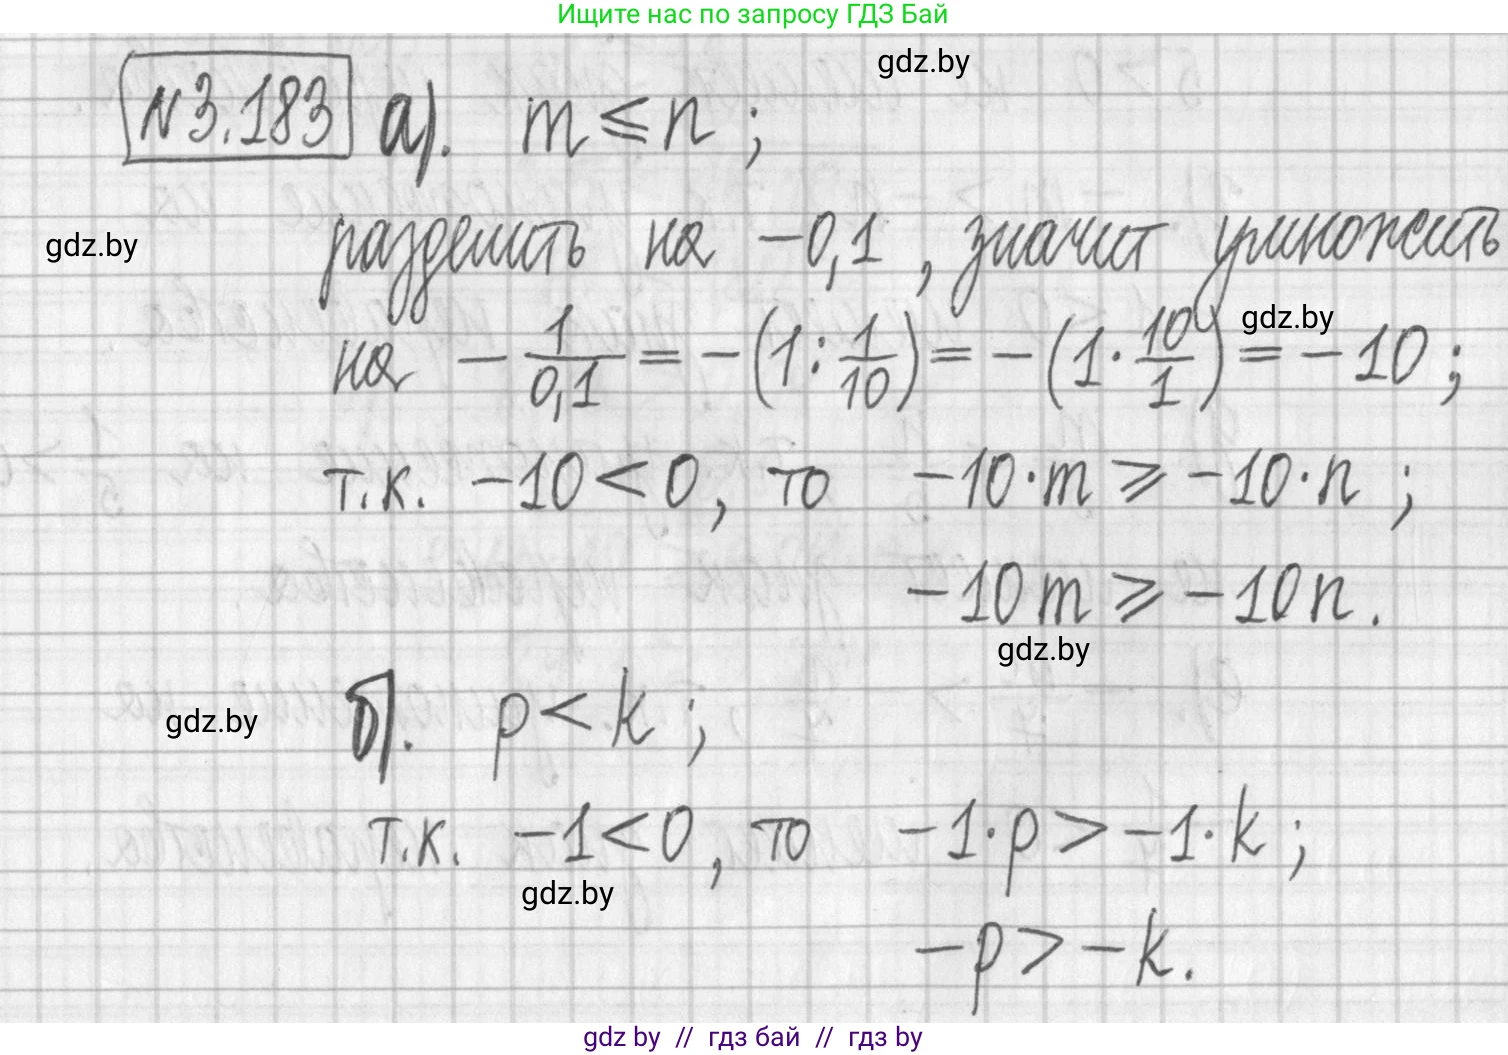 Ищите нас по запросу ГДЗ Бай
gdz.by
№3.183 а). m ⩽ n ;
gdz.by
разделить на −0,1 , значит умножить
gdz.by
на − 1/0,1 = −(1 : 1/10) = −(1 · 10/1) = −10 ;
т.к. −10 < 0, то −10·m ⩾ −10·n ;
−10m ⩾ −10n.
gdz.by
gdz.by
б). p < k ;
т.к. −1 < 0, то −1·p > −1·k ;
gdz.by
−p > −k.
gdz by // гдз бай // гдз by